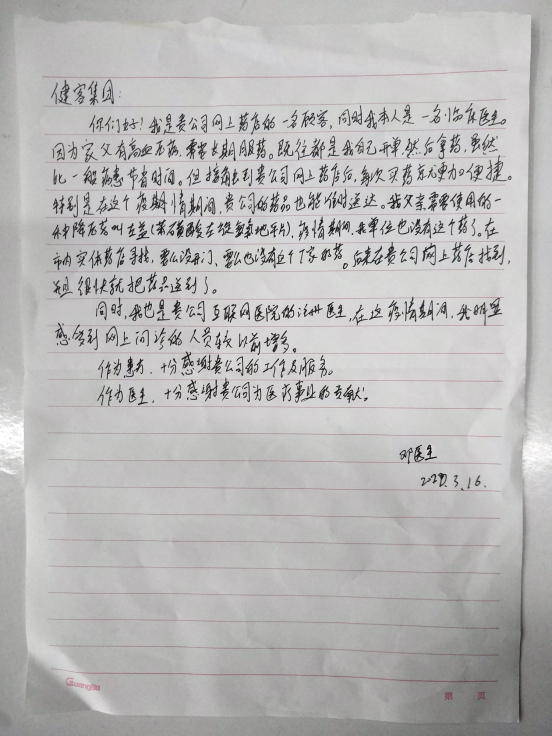 健客集团:
你们好!我是贵公司网上药店的一名顾客,同时我本人是一名临床医生。
因为家父有高血压病,需要长期服药。既往都是我自己开单,然后拿药,虽然
比一般病患节省时间。但接触到贵公司网上药店后,每次买药无比更加便捷。
特别是在这个疫期情期间,贵公司的药品也能准时送达。我父亲需要使用的一
种降压药叫左益(苯磺酸左旋氨氯地平片),疫情期间,我单位也没有这个药了。在
市内实体药店寻找,要么没开门,要么也没有这个厂家的药。后来在贵公司网上药店找到,
并且很快就把药品送到了。
同时,我也是贵公司互联网医院的注册医生,在这疫情期间,我明显
感受到网上问诊的人员较以前增多。
作为患者,十分感谢贵公司的工作及服务。
作为医生,十分感谢贵公司为医疗事业的贡献。
邓医生
2020.3.16.
Guangbo
第 页